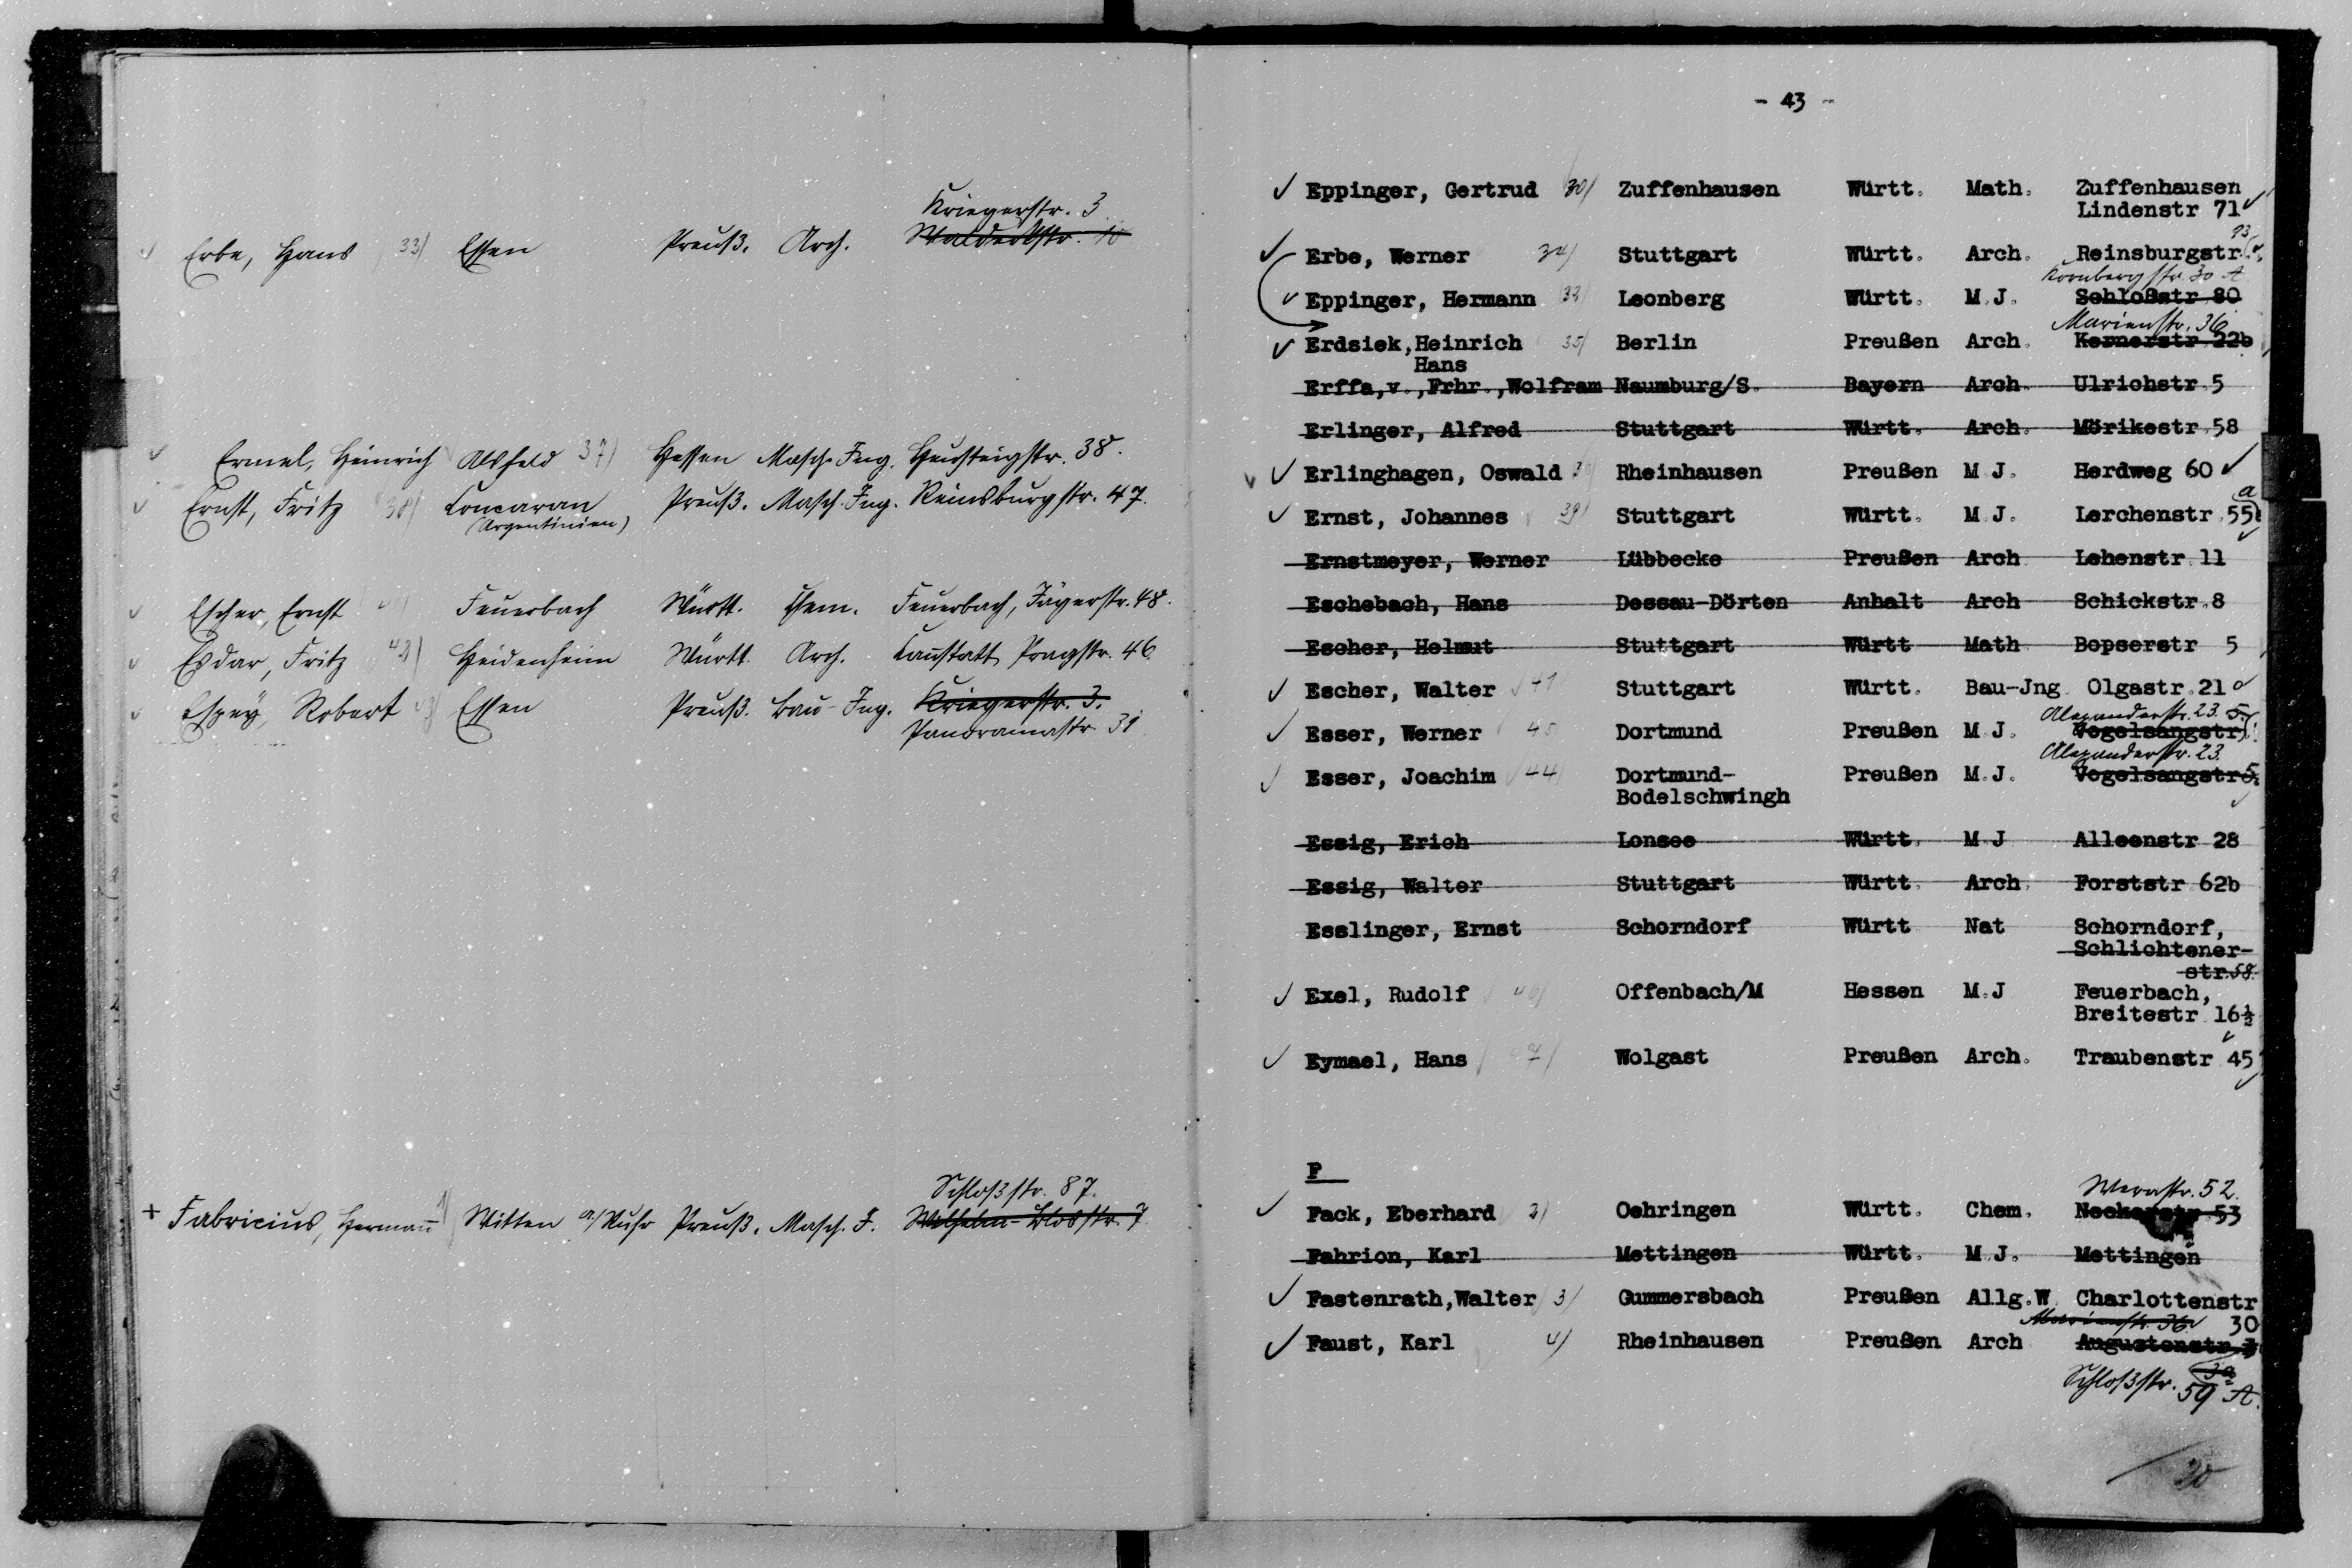 Kriegerstr. 3
Erbe, Hans 33) Essen Preuß. Arch. Walderstr. 10
Ermel, Heinrich Alsfeld 37) Hessen Masch. Ing. Heusteigstr. 38.
Ernst, Fritz 38) Concaran Preuß. Masch. Ing. Reinsburgstr. 47.
(Argentinien)
Escher, Ernst Feuerbach Württ. Chem. Feuerbach, Jägerstr. 48.
Esdar, Fritz 42) Heidenheim Württ. Arch. Cannstatt Pragstr. 46
Espey, Robert Essen Preuß. Bau-Ing. Kriegerstr. 3.
Panoramastr 31
Schloßstr. 87.
+ Fabricius, Hermann 1) Witten a/Ruhr Preuß. Masch. I. Wilhelm-Blosstr. 7
- 43 -
✓ Eppinger, Gertrud 30) Zuffenhausen Württ. Math. Zuffenhausen
Lindenstr 71 ✓
93
✓ Erbe, Werner 34) Stuttgart Württ. Arch. Reinsburgstr.
Kornbergstr. 30 A
✓ Eppinger, Hermann 32) Leonberg Württ. M.J. Schloßstr 80
Marienstr. 36
✓ Erdsiek, Heinrich 35) Berlin Preußen Arch. Kernerstr 22b
Hans
Erffa, v., Frhr., Wolfram Naumburg/S. Bayern Arch. Ulrichstr. 5
Erlinger, Alfred Stuttgart Württ. Arch. Mörikestr. 58
✓ Erlinghagen, Oswald Rheinhausen Preußen M J. Herdweg 60 ✓
a
✓ Ernst, Johannes 39) Stuttgart Württ. M J. Lerchenstr. 55
Ernstmeyer, Werner Lübbecke Preußen Arch Lehenstr. 11
Eschebach, Hans Dessau-Dörten Anhalt Arch Schickstr. 8
Escher, Helmut Stuttgart Württ Math Bopserstr 5
✓ Escher, Walter 41 Stuttgart Württ. Bau-Jng. Olgastr. 21
Alexanderstr. 23. 5.
✓ Esser, Werner 45 Dortmund Preußen M J. Vogelsangstr
Alexanderstr. 23.
✓ Esser, Joachim 44) Dortmund- Preußen M.J. Vogelsangstr 5
Bodelschwingh
Essig, Erich Lonsee Württ. M J Alleenstr 28
Essig, Walter Stuttgart Württ. Arch. Forststr 62b
Esslinger, Ernst Schorndorf Württ Nat Schorndorf,
Schlichtener-
str. 58.
✓ Exel, Rudolf 46) Offenbach/M Hessen M.J Feuerbach,
Breitestr 16½
✓ Eymael, Hans 47) Wolgast Preußen Arch. Traubenstr 45
F
Werastr. 52.
✓ Fack, Eberhard 2) Oehringen Württ. Chem. Neckarstr 53
Fahrion, Karl Mettingen Württ. M J. Mettingen
✓ Fastenrath, Walter 3) Gummersbach Preußen Allg.W. Charlottenstr
Marienstr. 36 30
✓ Faust, Karl 4) Rheinhausen Preußen Arch Augustenstr 3
Schloßstr. 59 A.
20